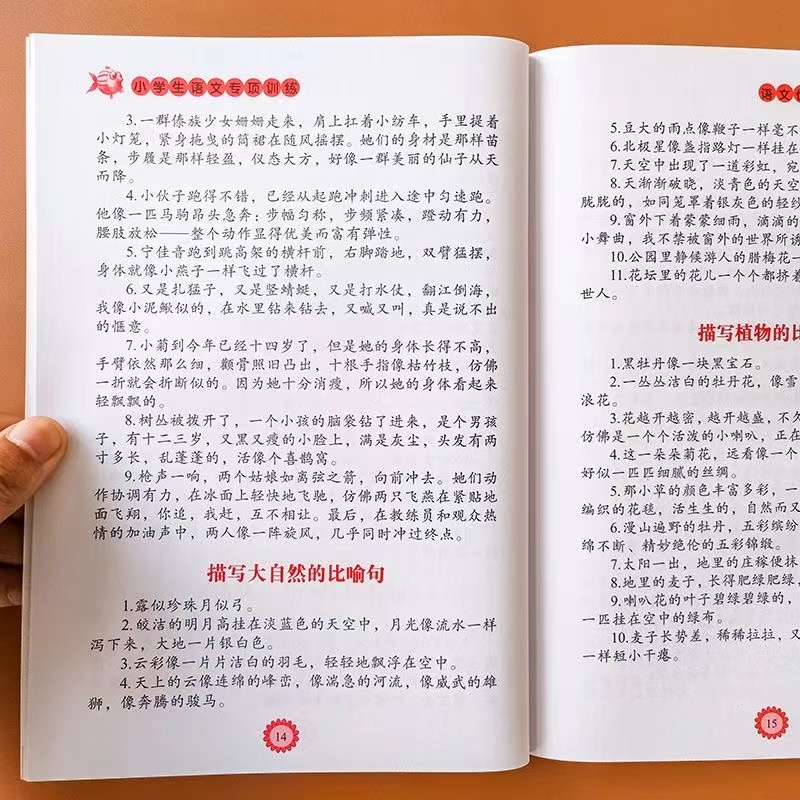 小学生语文专项训练
3.一群傣族少女姗姗走来，肩上扛着小纺车，手里提着
小灯笼，紧身拖曳的筒裙在随风摇摆。她们的身材是那样苗
条，步履是那样轻盈，仪态大方，好像一群美丽的仙子从天
而降。
4.小伙子跑得不错，已经从起跑冲刺进入途中匀速跑。
他像一匹马驹昂头急奔：步幅匀称，步频紧凑，蹬动有力，
腰肢放松——整个动作显得优美而富有弹性。
5.宁佳音跑到跳高架的横杆前，右脚踏地，双臂猛摆，
身体就像小燕子一样飞过了横杆。
6.又是扎猛子，又是竖蜻蜓，又是打水仗，翻江倒海，
我像小泥鳅似的，在水里钻来钻去，又喊又叫，真是说不出
的惬意。
7.小菊到今年已经十四岁了，但是她的身体长得不高，
手臂依然那么细，颧骨照旧凸出，十根手指像枯竹枝，仿佛
一折就会折断似的。因为她十分消瘦，所以她的身体看起来
轻飘飘的。
8.树丛被拨开了，一个小孩的脑袋钻了进来，是个男孩
子，有十二三岁，又黑又瘦的小脸上，满是灰尘，头发有两
寸多长，乱蓬蓬的，活像个喜鹊窝。
9.枪声一响，两个姑娘如离弦之箭，向前冲去。她们动
作协调有力，在冰面上轻快地飞驰，仿佛两只飞燕在紧贴地
面飞翔，你追，我赶，互不相让。最后，在教练员和观众热
情的加油声中，两人像一阵旋风，几乎同时冲过终点。
描写大自然的比喻句
1.露似珍珠月似弓。
2.皎洁的明月高挂在淡蓝色的天空中，月光像流水一样
泻下来，大地一片银白色。
3.云彩像一片片洁白的羽毛，轻轻地飘浮在空中。
4.天上的云像连绵的峰峦，像湍急的河流，像威武的雄
狮，像奔腾的骏马。
14
语文
5.豆大的雨点像鞭子一样毫不
6.北极星像盏指路灯一样挂在
7.天空中出现了一道彩虹，宛
8.天渐渐破晓，淡青色的天空
胧胧的，如同笼罩着银灰色的轻纱
9.窗外下着蒙蒙细雨，滴滴的
小舞曲，我不禁被窗外的世界所诱
10.公园里静候游人的腊梅花一
11.花坛里的花儿一个个都挤着
世人。
描写植物的比
1.黑牡丹像一块黑宝石。
2.一丛丛洁白的牡丹花，像雪
浪花。
3.花越开越密，越开越盛，不久
仿佛是一个个活泼的小喇叭，正在
4.这一朵朵菊花，远看像一个
好似一匹匹细腻的丝绸。
5.那小草的颜色丰富多彩，一
编织的花毯，活生生的，自然而又
6.漫山遍野的牡丹，五彩缤纷
绵不断、精妙绝伦的五彩锦缎。
7.太阳一出，地里的庄稼便抹
8.地里的麦子，长得肥绿肥绿，
9.喇叭花的叶子碧绿碧绿的，
一匹挂在空中的绿布。
10.麦子长势差，稀稀拉拉，又
一样短小干瘪。
15